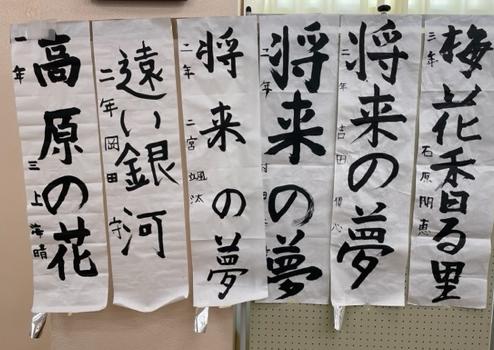 梅花香る里
三年 石原
将来の夢
二年 吉田
将来の夢
二年
将来の夢
二年 二宮 颯汰
遠い銀河
二年 岡田 守
高原の花
一年 三上 海晴